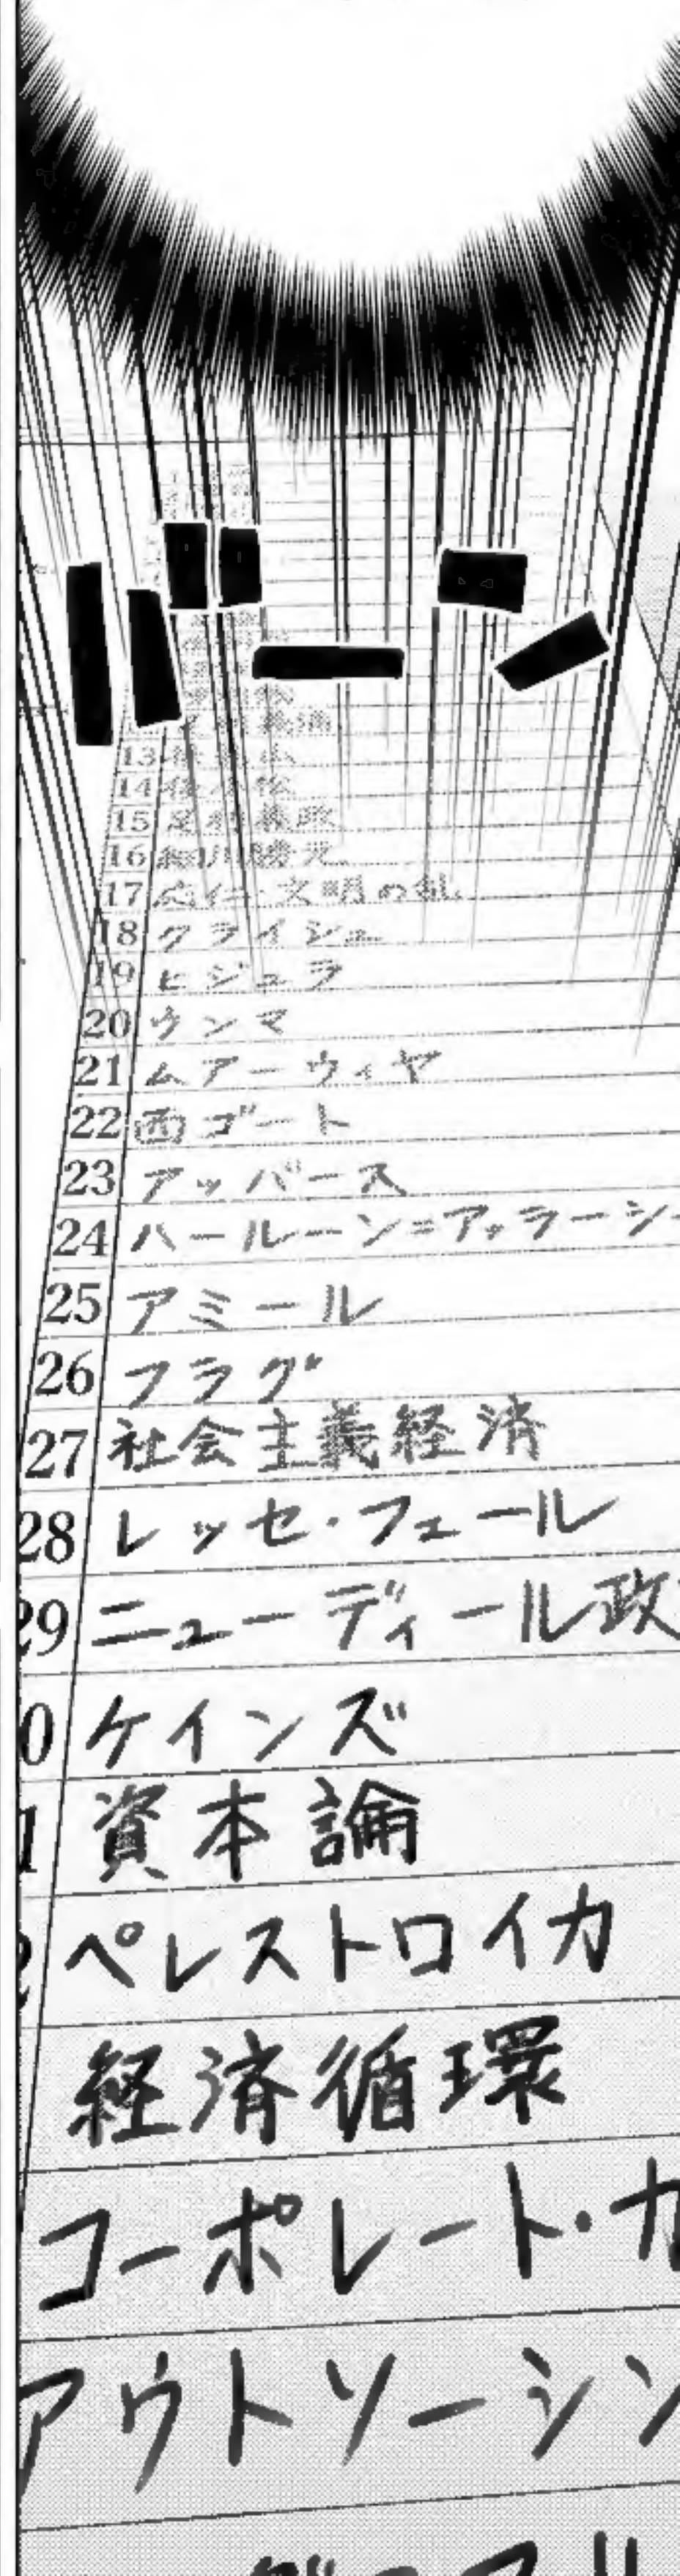 13
14
15 足利義政
16 細川勝元
17 応仁・文明の乱
18 クライシュ
19 ヒジュラ
20 ウンマ
21 ムアーウィヤ
22 西ゴート
23 アッバース
24 ハールーン=アッラーシ
25 アミール
26 フラグ
27 社会主義経済
28 レッセ・フェール
29 ニューディール政
0 ケインズ
1 資本論
2 ペレストロイカ
経済循環
コーポレート・ガ
アウトソーシン